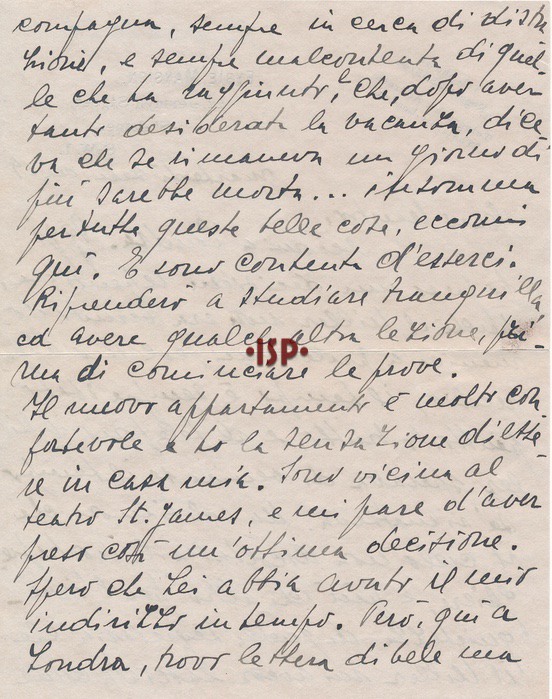 compagna, sempre in cerca di distra
zioni, e sempre malcontenta di quel-
le che ha raggiunto, e che, dopo aver
tanto desiderata la vacanza, dice
va che se rimaneva un giorno di
più sarebbe morta... insomma
per tutte queste belle cose, eccomi
qui. E sono contenta d'esserci.
Riprenderò a studiare tranquilla,
ed avere qualche altra lezione, pri-
ma di cominciare le prove.
·ISP·
Il nuovo appartamento è molto con
fortevole e ho la sensazione di esse-
re in casa mia. Sono vicina al
teatro St. James, e mi pare d'aver
preso così un'ottima decisione.
Spero che Lei abbia avuto il mio
indirizzo in tempo. Però, qui a
Londra, trovo lettera di bele ma